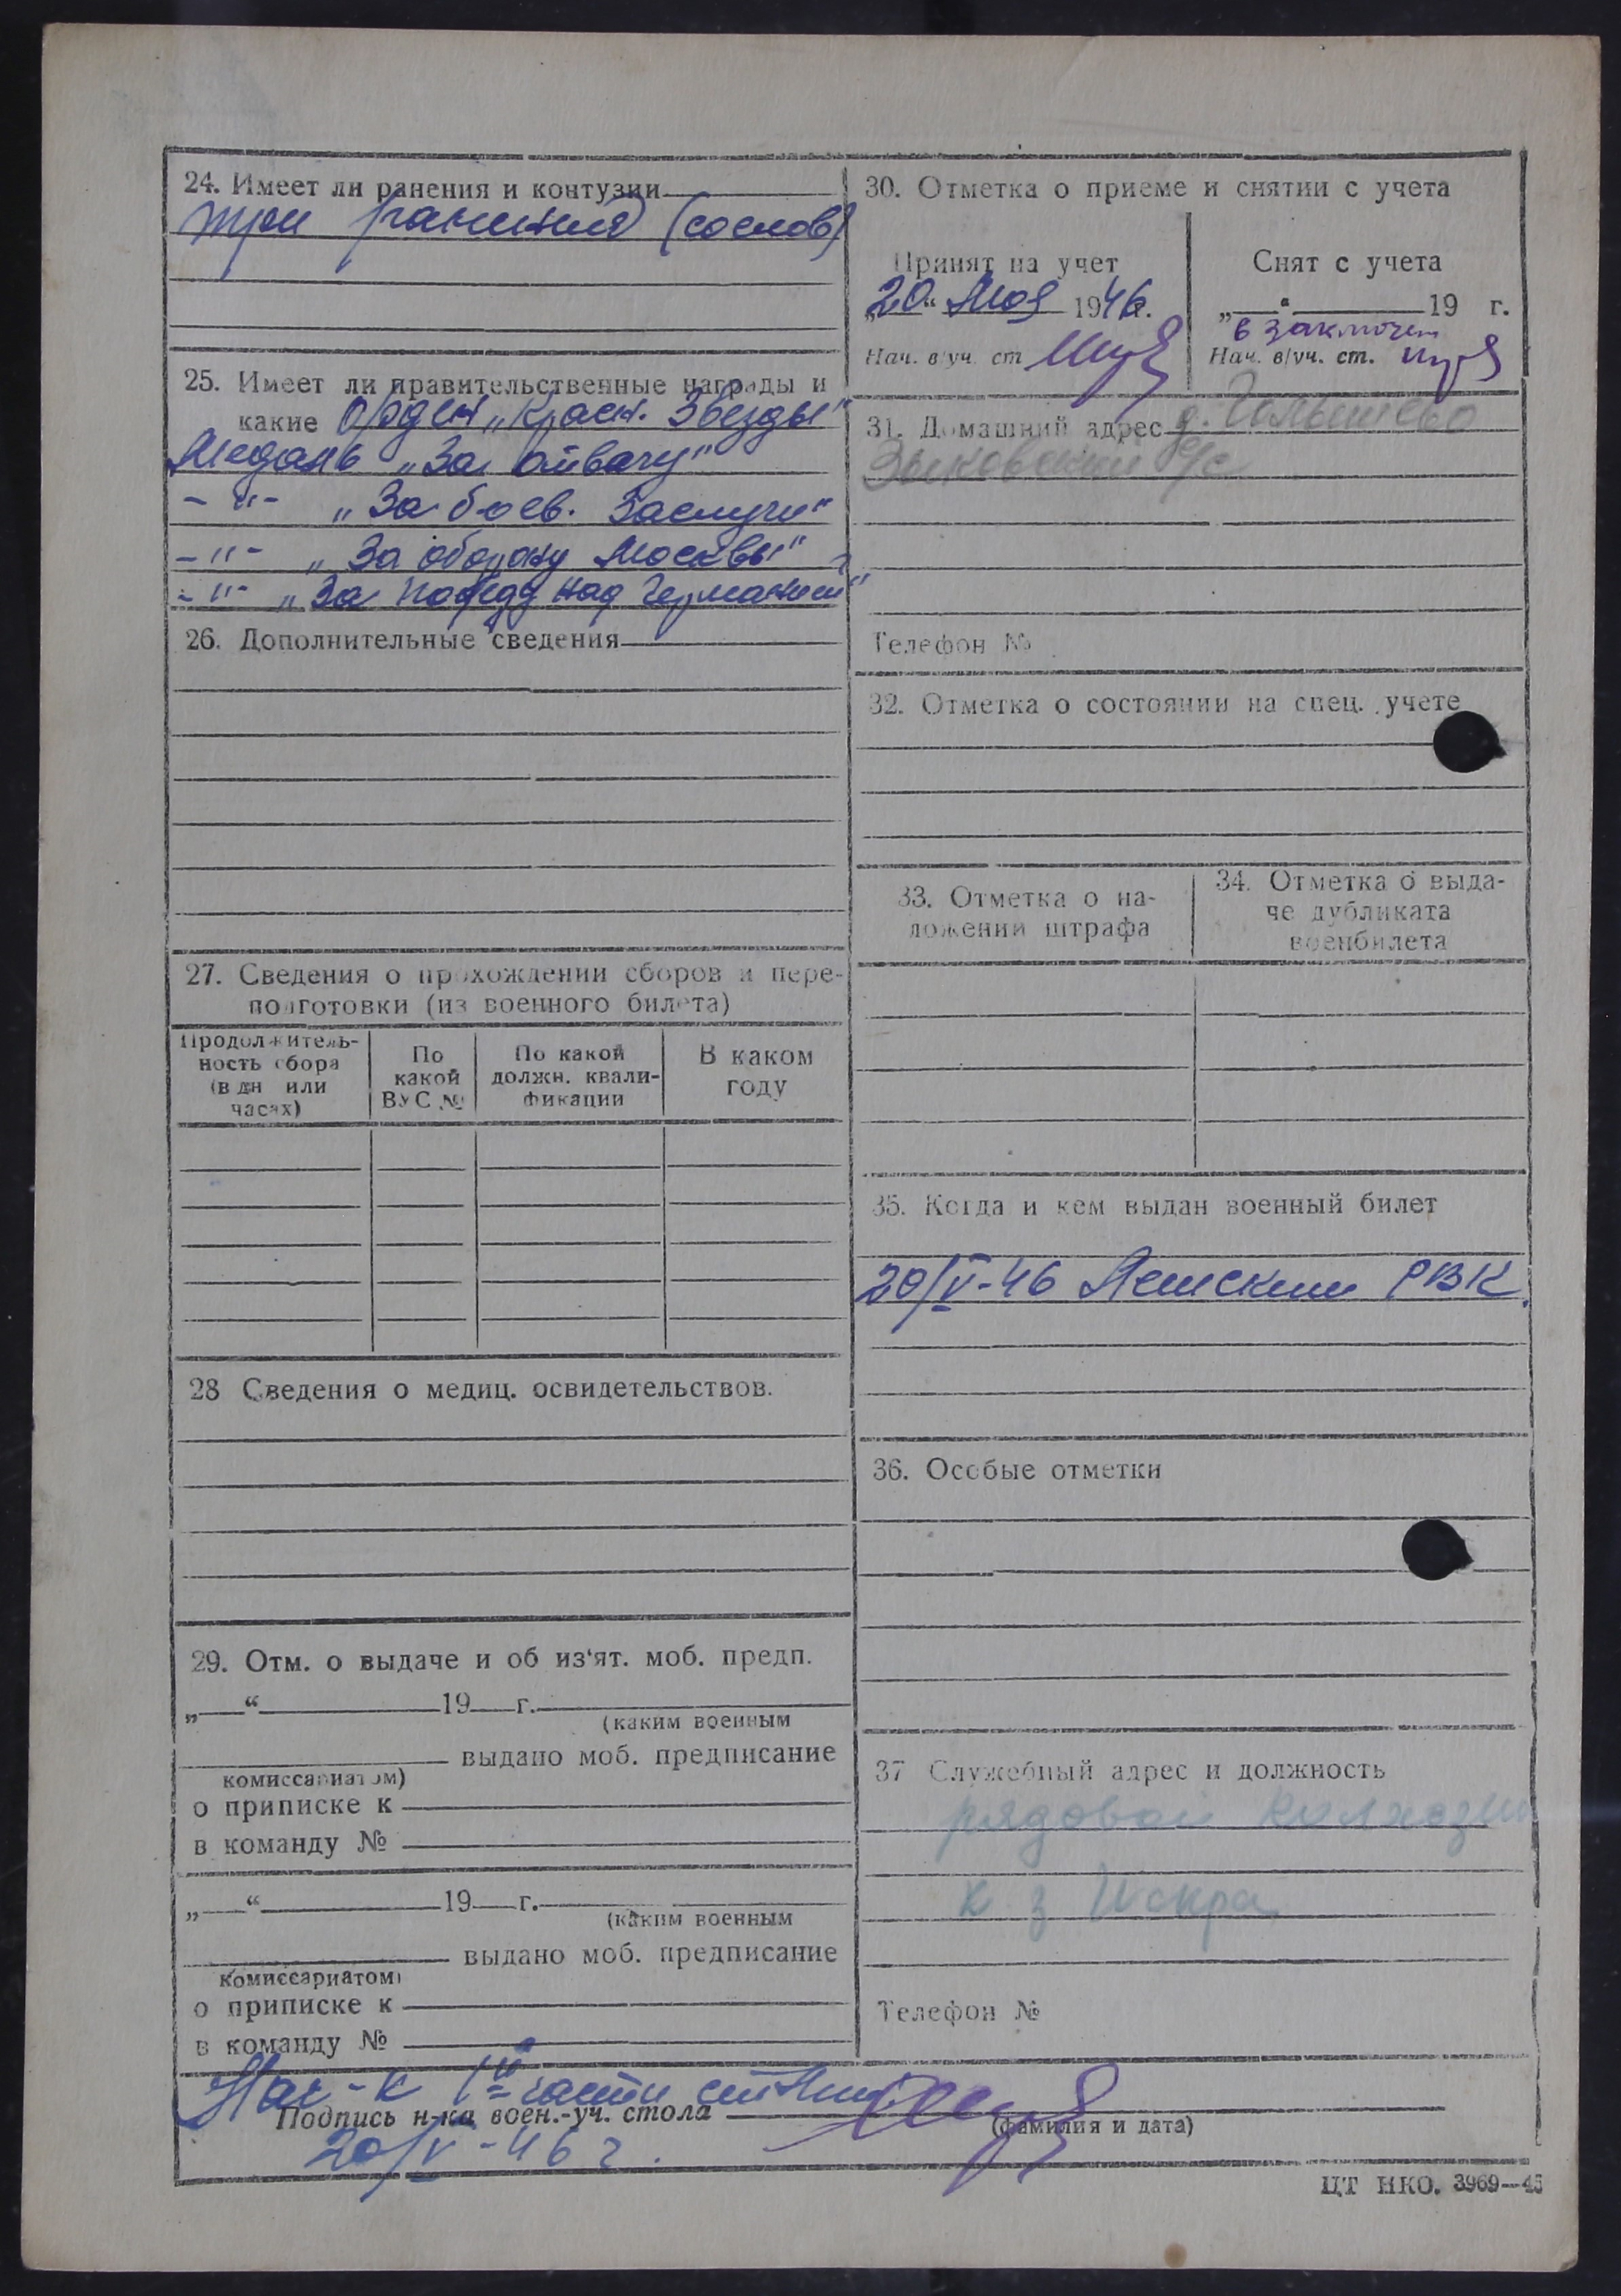 24. Имеет ли ранения и контузии
три ранения (со слов)
25. Имеет ли правительственные награды и
какие Орден „Красн. Звезды"
Медаль „За отвагу"
-"- „За боев. заслуги"
-"- „За оборону Москвы"
-"- „За победу над Германией"
26. Дополнительные сведения
27. Сведения о прохождении сборов и пере-
подготовки (из военного билета)
Продолжитель-
ность сбора
(в дн или
часах)
По
какой
ВУС №
По какой
должн. квали-
фикации
В каком
году
28 Сведения о медиц. освидетельствов.
29. Отм. о выдаче и об из'ят. моб. предп.
„ “ 19 г.
(каким военным
выдано моб. предписание
комиссариатом)
о приписке к
в команду №
„ “ 19 г.
(каким военным
выдано моб. предписание
комиссариатом)
о приписке к
в команду №
30. Отметка о приеме и снятии с учета
Принят на учет
„20“ мая 1946г.
Нач. в/уч. ст
Снят с учета
„ “ 19 г.
в заключен
Нач. в/уч. ст.
31. Домашний адрес д. Голышево
Зыковский с/с
Телефон №
32. Отметка о состоянии на спец. учете
33. Отметка о на-
ложении штрафа
34. Отметка о выда-
че дубликата
военбилета
35. Когда и кем выдан военный билет
20/V-46 РВК.
36. Особые отметки
37 Служебный адрес и должность
рядовой колхозник
к з Искра
Телефон №
Нач-к 1й части
Подпись н-ка воен.-уч. стола
(фамилия и дата)
20/V-46 г.
ЦТ НКО. 3969—45